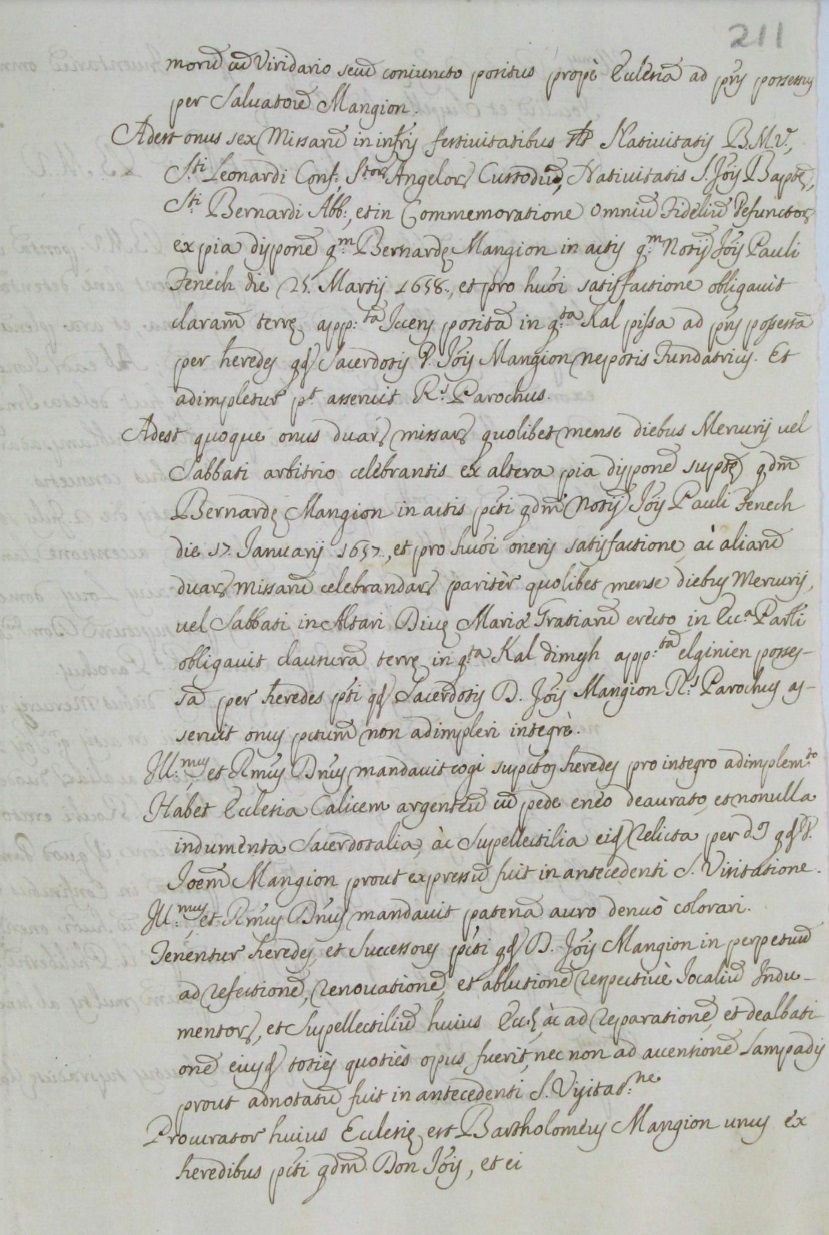 211
morũ cũ Viridario seũ coniuncto positus propè Ecclesiã ad pñs possessus
per Salvatorẽ Mangion.
Adest onus sex Missarũ in infrĩs festivitatibus Nativitatis B.M.V.,
S.ti Leonardi Conf., S.torũ Angelorũ Custodũ, Nativitatis S. Jõis Baptę,
S.ti Bernardi Abb:, et in Commemoratione Omniũ Fideliũ Defunctorũ
ex pia disponẽ q.m Bernardę Mangion in actis q.m Notĩj Jõis Pauli
Fenech die 25. Martij 1658., et pro huõi satisfactione obligavit
claram terrę app:ta Icceys positã in q.ta Kal pissa ad pñs possessã
per heredes qd̃ Sacerdotis D. Jõis Mangion nepotis Fundatricis. Et
adimpletur pt asseruit R.s Parochus.
Adest quoque onus duarũ missarũ quolibet mense diebus Mercurij vel
Sabbati arbitrio celebrantis ex altera pia disponẽ suptę qdm̃
Bernardę Mangion in actis pĩti qdm̃ Notĩj Jõis Pauli Fenech
die 17. Januarij 1657., et pro huõi oneris satisfactione, ac aliarũ
duarũ missarũ celebrandarũ paritèr quolibet mense diebus Mercurij,
vel Sabbati in Altari Divę Mariæ Gratiarũ erecto in Ecc.a Parłi
obligavit clausurã terrę in q.ta Kal dimegh app:ta elginien posses-
sã per heredes pĩti qd̃ Sacerdotis D. Jõis Mangion R.s Parochus as-
seruit onus pitum̃ non adimpleri integrè.
Ill.mus, et Rm̃us Dñus mandavit cogi supĩtos heredes pro integro adimplem.to
Habet Ecclesia Calicem argenteũ cũ pede eneo deaurato, et nonulla
indumenta Sacerdotalia, àc Supellectilia eidẽ relicta per dĩ qd̃ D.
Joem̃ Mangion prout expressũ fuit in antecedenti S. Visitatione.
Ill.mus et Rm̃us Dñus mandavit patenã auro denuò colorari.
Tenentur heredes et Successores pĩti qd̃ D. Jõis Mangion in perpetuũ
ad refectionẽ, renovationẽ, et ablutionẽ respectivè Jocaliũ Indu-
mentorũ, et Supellectiliũ huius Eccłę, àc ad reparationẽ, et dealbati-
onẽ eiusdẽ totiès quotiès opus fuerit, nec non ad accentionẽ Lampadis
prout adnotatũ fuit in antecedenti S. Visitat.ne
Procurator huius Ecclesię est Bartholomeus Mangion unus ex
heredibus pĩti qdm̃ Don Jõis, et ei